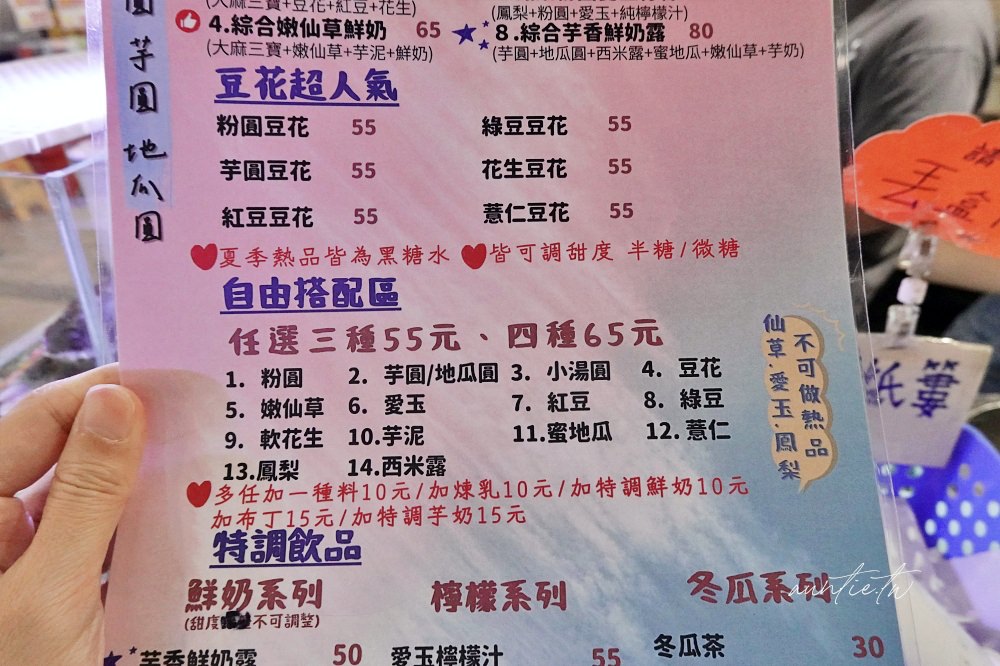 圓 芋圓 地瓜圓
(大麻三寶+豆花+紅豆+花生)
(鳳梨+粉圓+愛玉+純檸檬汁)
4.綜合嫩仙草鮮奶 65
8.綜合芋香鮮奶露 80
(大麻三寶+嫩仙草+芋泥+鮮奶)
(芋圓+地瓜圓+西米露+蜜地瓜+嫩仙草+芋奶)
豆花超人氣
粉圓豆花 55
綠豆豆花 55
芋圓豆花 55
花生豆花 55
紅豆豆花 55
薏仁豆花 55
夏季熱品皆為黑糖水
皆可調甜度 半糖/微糖
自由搭配區
任選三種55元、四種65元
1. 粉圓 2. 芋圓/地瓜圓 3. 小湯圓 4. 豆花
5. 嫩仙草 6. 愛玉 7. 紅豆 8. 綠豆
9. 軟花生 10.芋泥 11.蜜地瓜 12.薏仁
13.鳳梨 14.西米露
仙草.愛玉.鳳梨
不可做熱品
多任加一種料10元/加煉乳10元/加特調鮮奶10元
加布丁15元/加特調芋奶15元
特調飲品
鮮奶系列
(甜度不可調整)
檸檬系列
冬瓜系列
芋香鮮奶露 50
愛玉檸檬汁 55
冬瓜茶 30
請
丟
盒
紙簍
auntie.tw